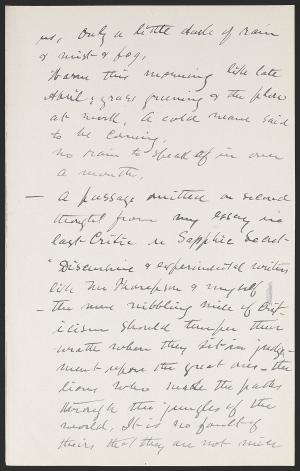 us, Only a little dash of rain
& mist & fog,
Warm this morning like late
April; grass greening & the plow
at work. A cold wave said
to be coming,
no rain to speak of in over
a month.
— A passage omitted on second
thought from my essay in
last Critic on Sapphic Secret-
"Discursive & experimental writers
like Mr Thompson & myself
— the mere nibbling mice of Crit-
icism should temper their
wrath when they sit in judge-
ment upon the great ones — the
lions who made the paths
through the jungles of the
world. It is no fault of
theirs that they are not mice